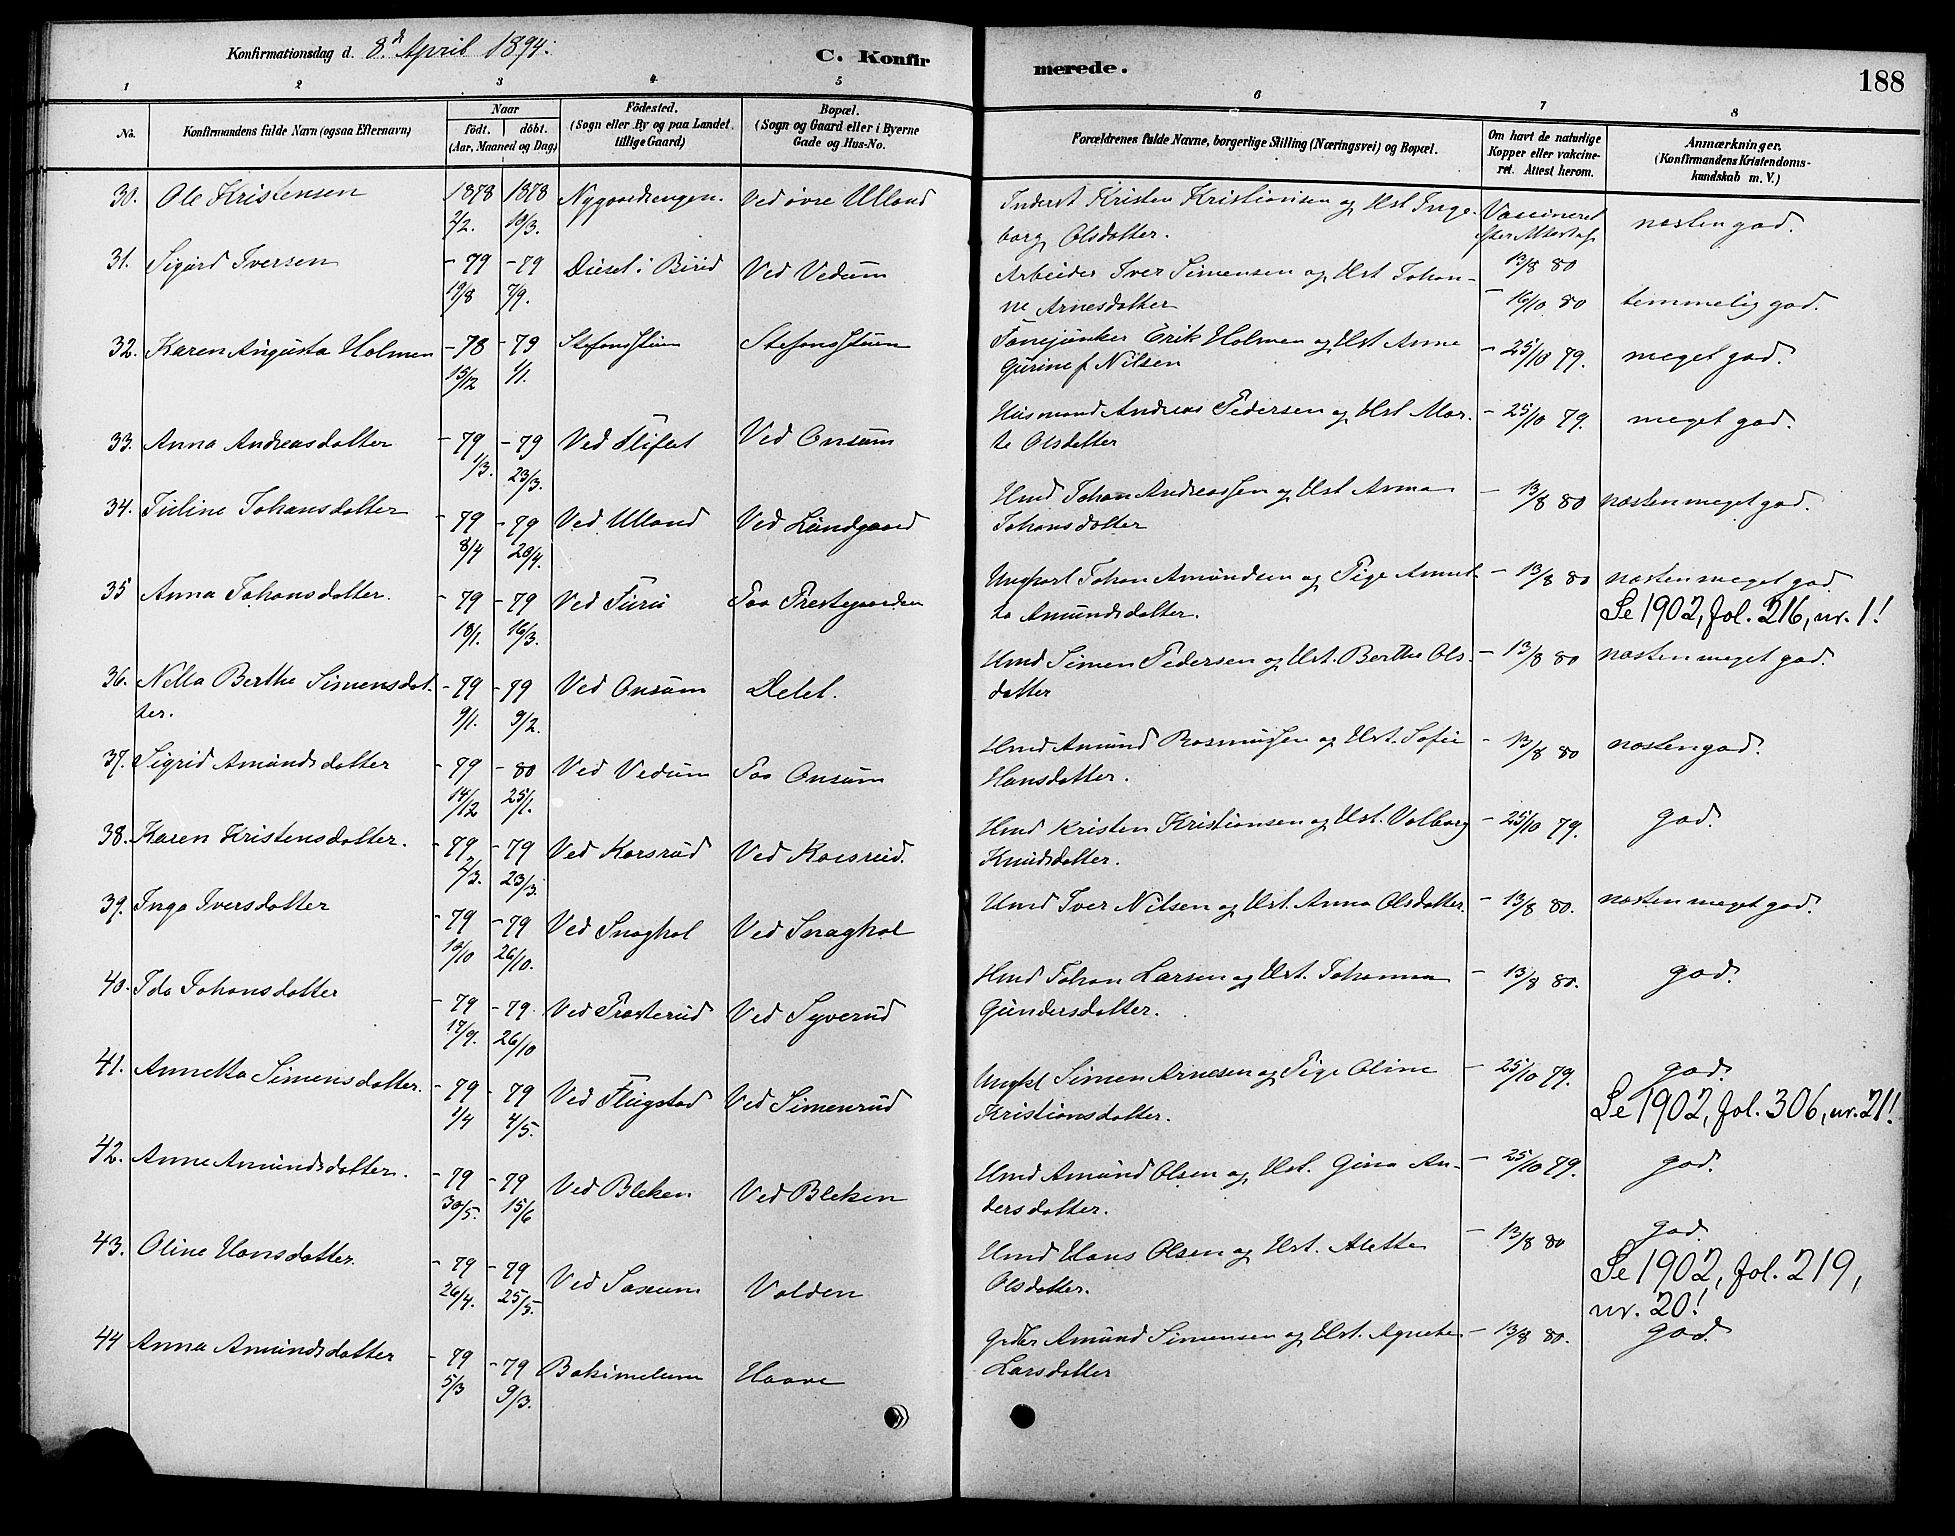 Konfirmationsdag d. 8d April 1894.
C. Konfirmerede.
188
1 2 3 4 5 6 7 8
No.
Konfirmandens fulde Navn (ogsaa Efternavn)
Naar
födt. döbt.
(Aar, Maaned og Dag)
Födested.
(Sogn eller By og paa Landet tillige Gaard)
Bopæl.
(Sogn og Gaard eller i Byerne
Gade og Hus-No.
Forældrenes fulde Navne, borgerlige Stilling (Næringsvei) og Bopæl.
Om havt de naturlige
Kopper eller vakcine-
ret. Attest herom.
Anmærkninger.
(Konfirmandens Kristendoms-
kundskab m. V.)
30. Ole Kristensen 1878 1878 Nygaardsengen. Ved övre Ulland Inderst Kristen Kristiansen og Hst Inge- Vaccineret
2/2. 10/3. borg Olsdatter. efter Attest af næsten god.
31. Sigurd Iversen - 79 - 79 Diesel i Birid Ved Vedum Arbeider Iver Simensen og Hst Johan- 13/8 80
19/8 7/9. ne Arnesdatter - 16/10 80 temmelig god.
32. Karen Augusta Holmen - 78 - 79 Stefanstuen Stefanstuen Fanejunker Erik Holmen og Hst Anne - 25/10 79. meget god.
15/12 1/1. Gurine f Nilsen
33. Anna Andreasdatter - 79 - 79 Ved Fliflet Ved Onsum Husmand Andreas Pedersen og Hst Mar- - 25/10 79. meget god.
1/3. 23/3. te Olsdatter
34. Juline Johansdatter - 79 - 79 Ved Ulland Ved Lundgaard Hmd Johan Andreassen og Hst Anna - 13/8 80 næsten meget god.
8/4 20/4. Johansdatter
35 Anna Johansdatter. - 79 - 79 Ved Furu Paa Prestegaarden Ungkarl Johan Amundsen og Pige Annet- - 13/8 80 næsten meget god
18/1. 16/3. ta Amundsdatter. Se 1902, fol. 216, nr. 1!
36. Nella Berthe Simensdat- - 79 - 79 Ved Onsum Delet. Hmd Simen Pedersen og Hst. Berthe Ols- - 13/8 80 næsten meget god.
ter. 9/1. 9/2. datter
37. Sigrid Amundsdatter - 79 - 80 Ved Vedum Paa Onsum Hmd Amund Rasmussen og Hst. Sofie - 13/8 80 næsten god.
14/12 25/1. Hansdatter.
38. Karen Kristensdatter. - 79 - 79 Ved Korsrud Ved Korsrud. Hmd Kristen Kristiansen og Hst. Valborg - 25/10 79. god.
2/3. 23/3. Knudsdatter.
39. Inga Iversdatter - 79 - 79 Ved Snaghol Ved Snaghol Hmd Iver Nilsen og Hst. Anna Olsdatter. - 13/8 80. næsten meget god.
10/10 26/10.
40. Ida Johansdatter - 79 - 79. Ved Prosterud Ved Syverud Hmd Johan Larsen og Hst. Johanna - 13/8 80. god.
17/9. 26/10 Gundersdatter.
41. Annetta Simensdatter. - 79 - 79 Ved Flugstad Ved Simenrud Ungkl Simen Arnesen og Pige Oline - 25/10 79. god.
1/4 4/5. Kristiansdatter. Se 1902, fol. 306, nr. 21!
42. Anne Amundsdatter. - 79 - 79 Ved Bleken Ved Bleken Hmd Amund Olsen og Hst. Gina An- - 25/10 79. god.
30/5. 15/6 dersdatter.
43. Oline Hansdatter. - 79 - 79 Ved Saxum Volden Hmd Hans Olsen og Hst. Alette - 13/8 80 god.
26/4. 25/5. Olsdatter. Se 1902, fol. 219,
nr. 20!
44 Anna Amundsdatter - 79 - 79 Haave Amund Simensen og Hst. Agnete - 13/8 80. god.
5/3 9/3. Larsdatter